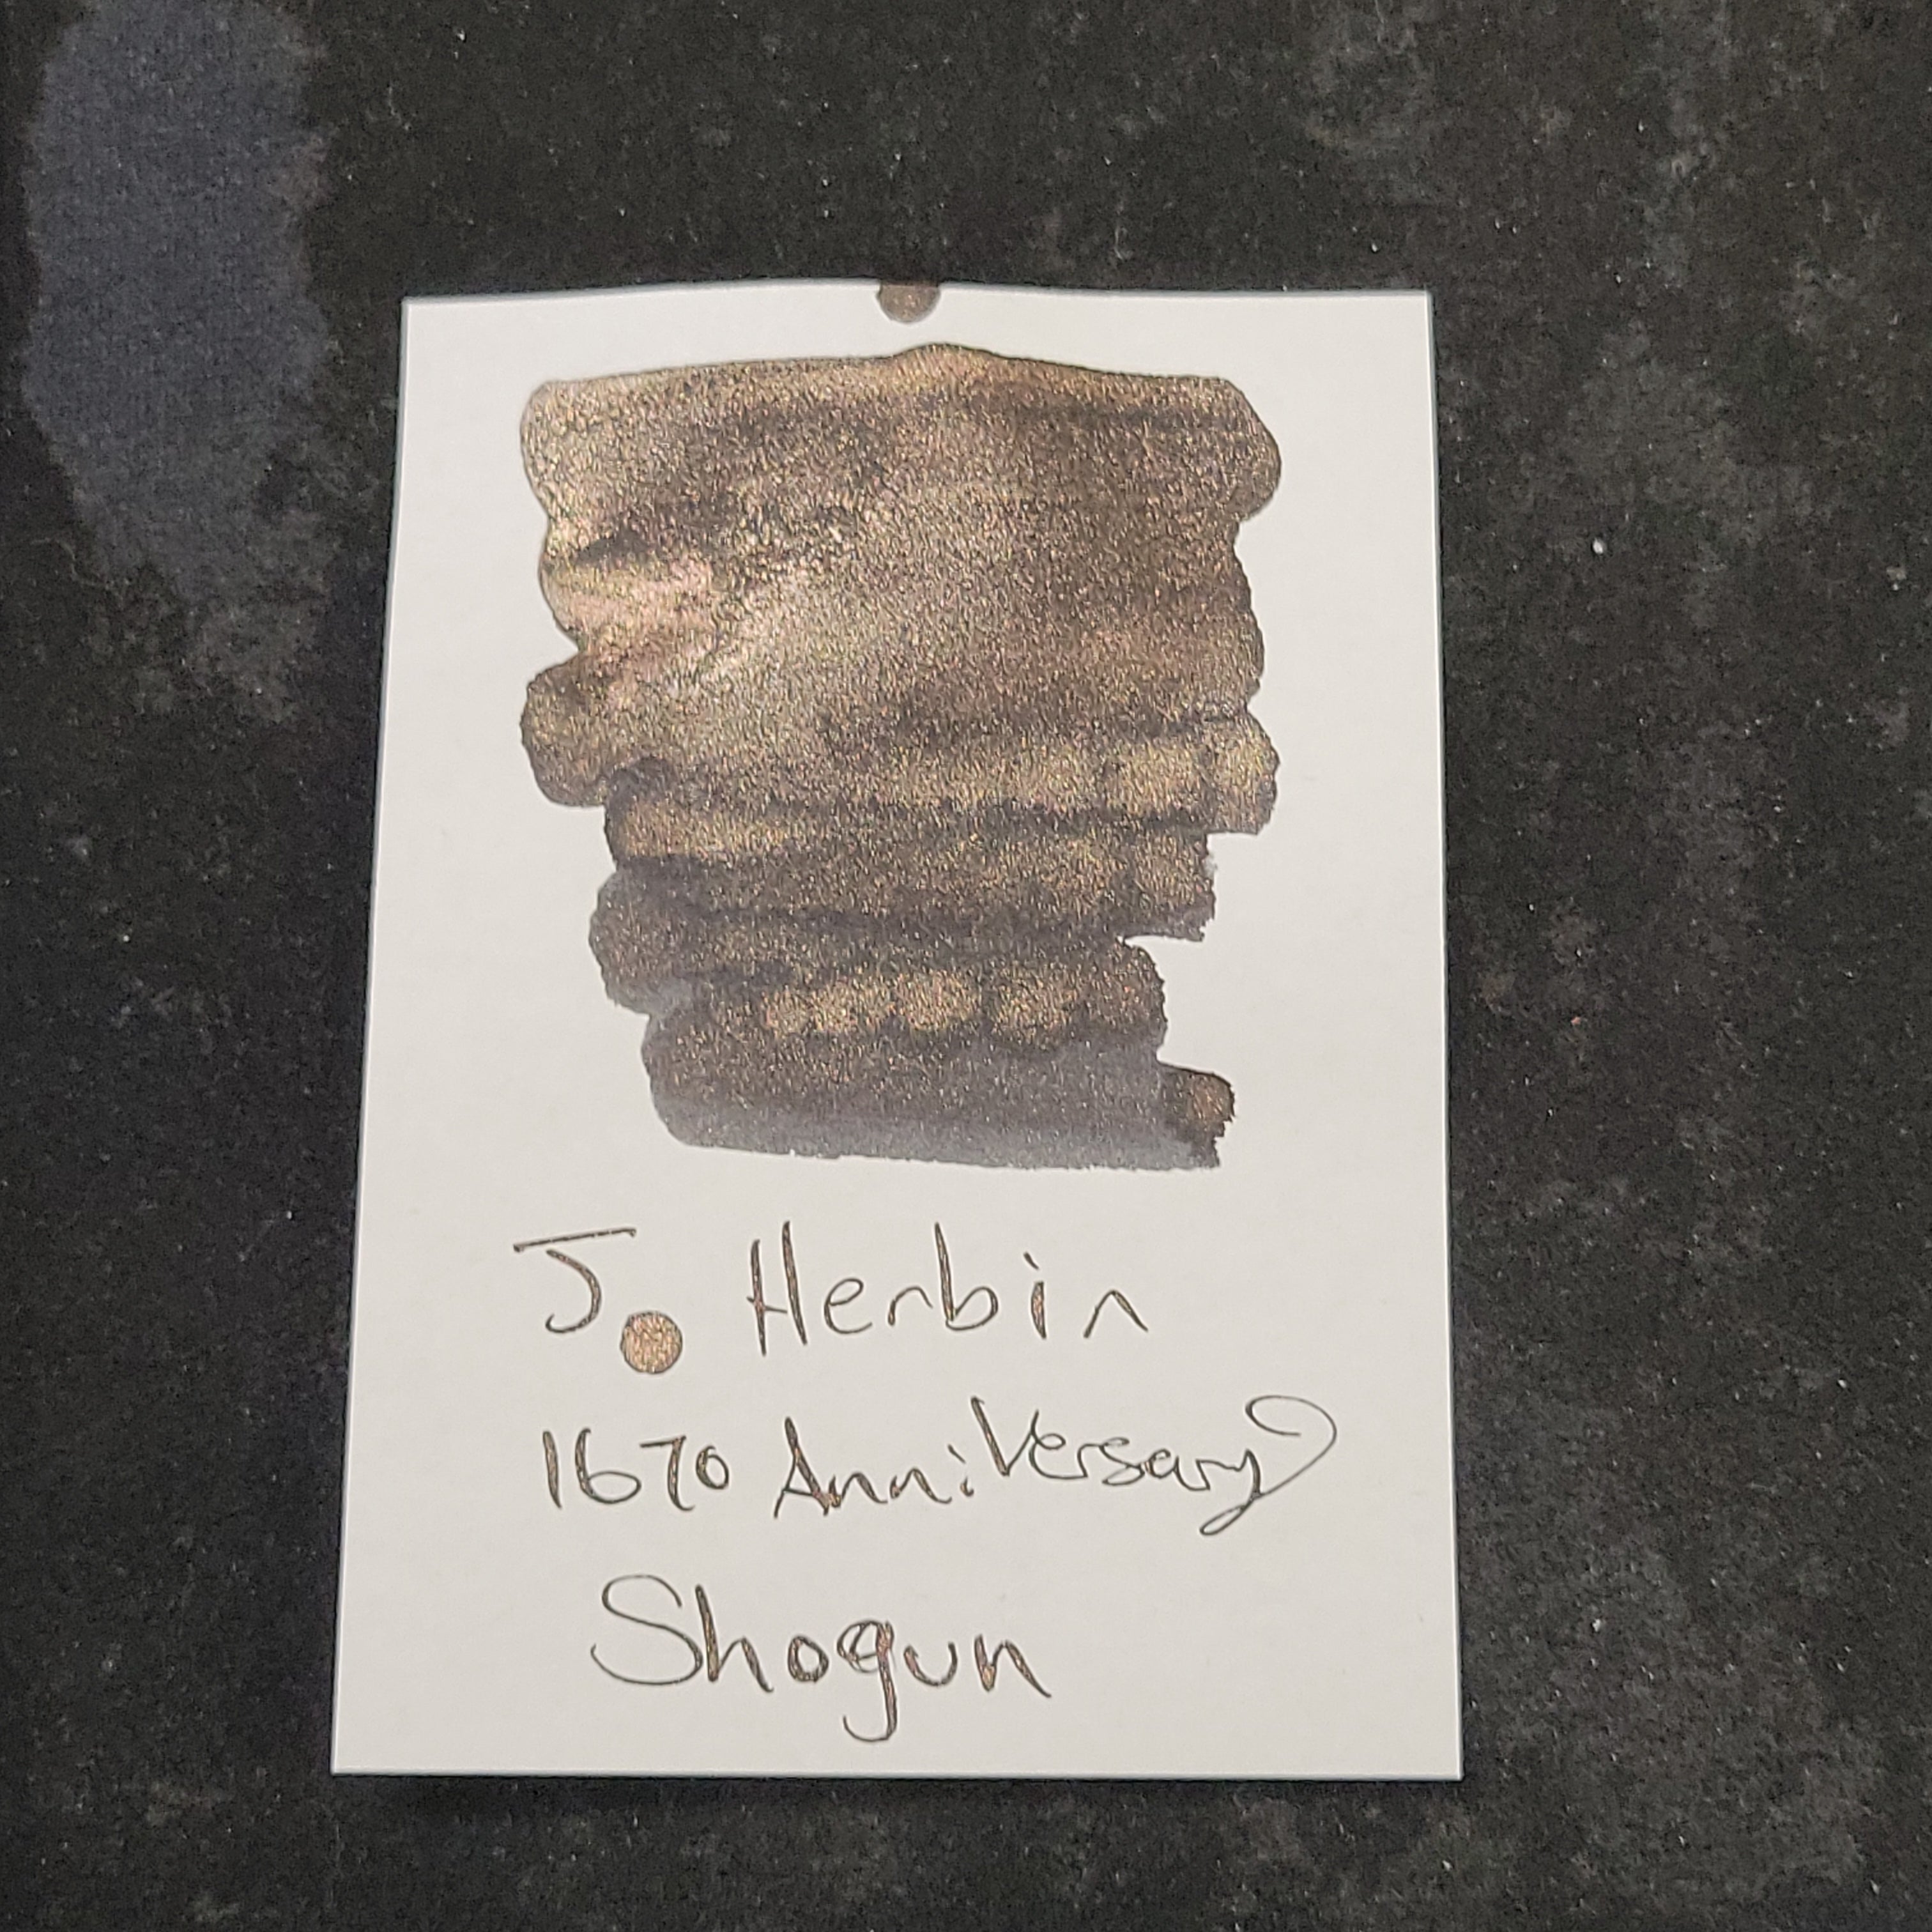 J. Herbin
1670 Anniversary
Shogun